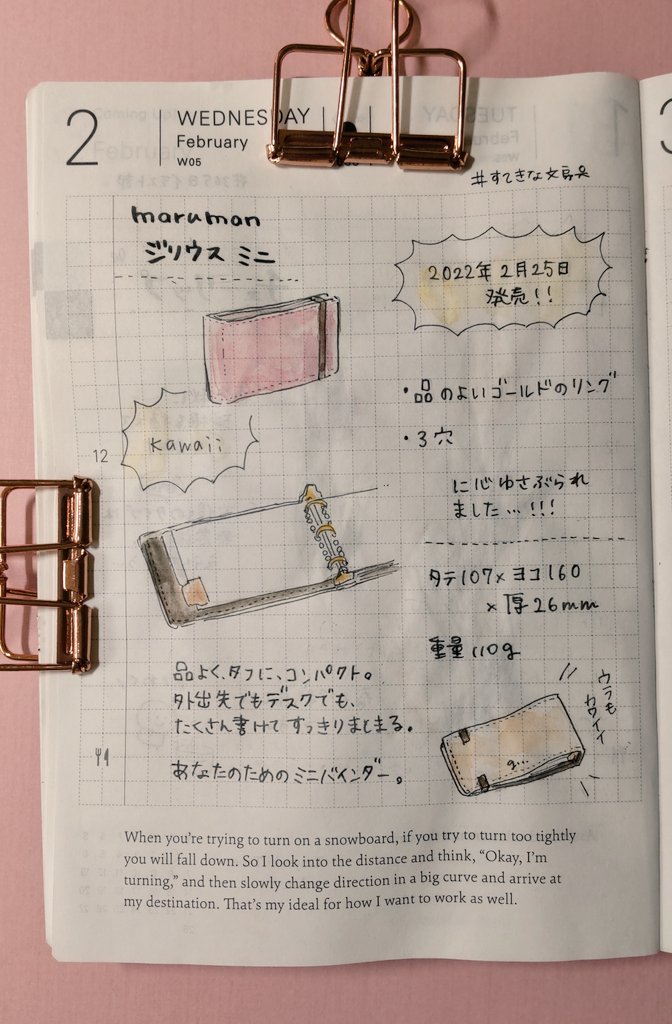 2
WEDNESDAY
February
W05
#すてきな文房具
maruman
ジリウス ミニ
2022年2月25日
発売!!
・品のよいゴールドのリング
・3穴
kawaii
12
に心ゆさぶられ
ました…!!!
タテ107×ヨコ160
×厚26mm
重量110g
品よく、タフに、コンパクト。
外出先でもデスクでも、
たくさん書けてすっきりまとまる。
あなたのためのミニバインダー。
ウラも
カワイイ
When you're trying to turn on a snowboard, if you try to turn too tightly
you will fall down. So I look into the distance and think, “Okay, I'm
turning,” and then slowly change direction in a big curve and arrive at
my destination. That's my ideal for how I want to work as well.